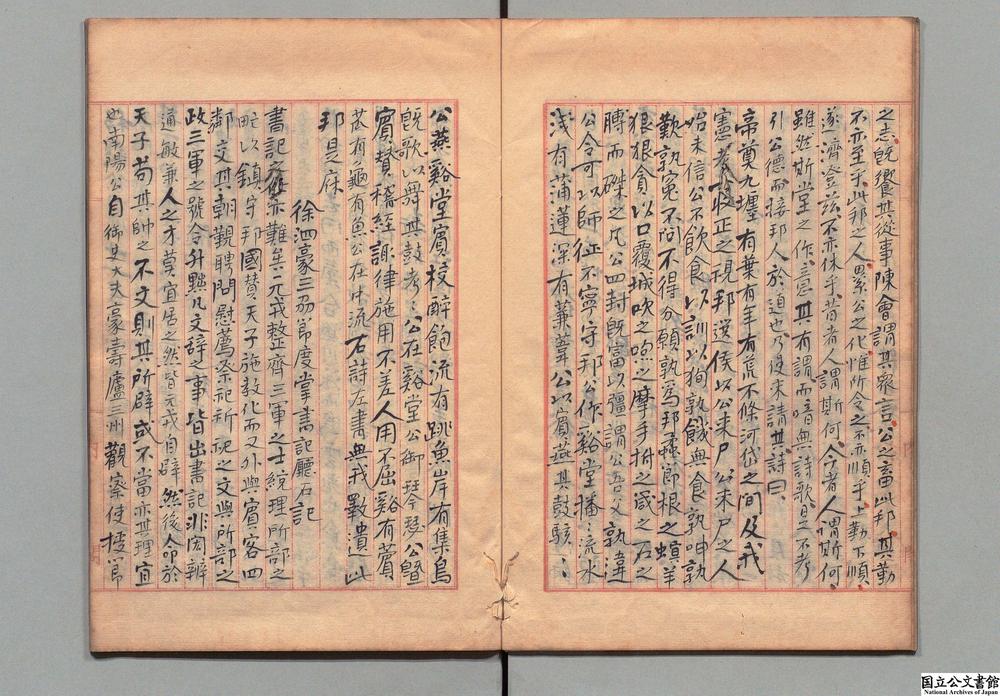 之志既饗其從事陳會謂其衆言公之畜此邦其勤
不亦至乎此邦之人累公之化惟所令之不亦順乎上勤下順
遂濟登兹不亦休乎昔者人謂斯何今者人謂斯何
雖然斯堂之作意其有謂而喑無詩歌是不考
引公德而接邦人於道也乃使来請其詩曰
帝奠九壥有葉有年有荒不條河岱之間及我
憲考一收正之視邦選侯以公来尸公来尸之人
始未信公不飲食以訓以狥孰饑無食孰呻孰
歎孰寃不問不得分願孰為邦蟊節根之螟羊
狠狼貪以口覆城吹之喣之摩手拊之箴之石之
膊而磔之凡公四封既富以彊謂公吾父孰違
公令可以師征不寧守邦公作谿堂播〻流水
淺有蒲蓮深有蒹葦公以賓燕其鼓駭〻
公燕谿堂賓校醉飽流有跳魚岸有集烏
既歌以舞其鼓考〻公在谿堂公御琴瑟公曁
賓贊稽經諏律施用不差人用不屈谿有薲
苽有龜有魚公在中流右詩左書無我斁遺此
邦是庥
徐泗豪三州節度掌書記廳石記
書記之任亦難矣元戎整齊三軍之士統理所部之
甿以鎮守邦國贊天子施教化而又外與賓客四
鄰交其朝覲聘問慰薦祭祀祈祝之文與所部之
政三軍之號令升黜凡文辭之事皆出書記非閎辨
通敏兼人之才莫宜居之然皆元戎自辟然後命於
天子苟其帥之不文則其所辟或不當亦其理宜
也南陽公自御史大夫豪壽廬三州觀察使授節
国立公文書館
National Archives of Japan